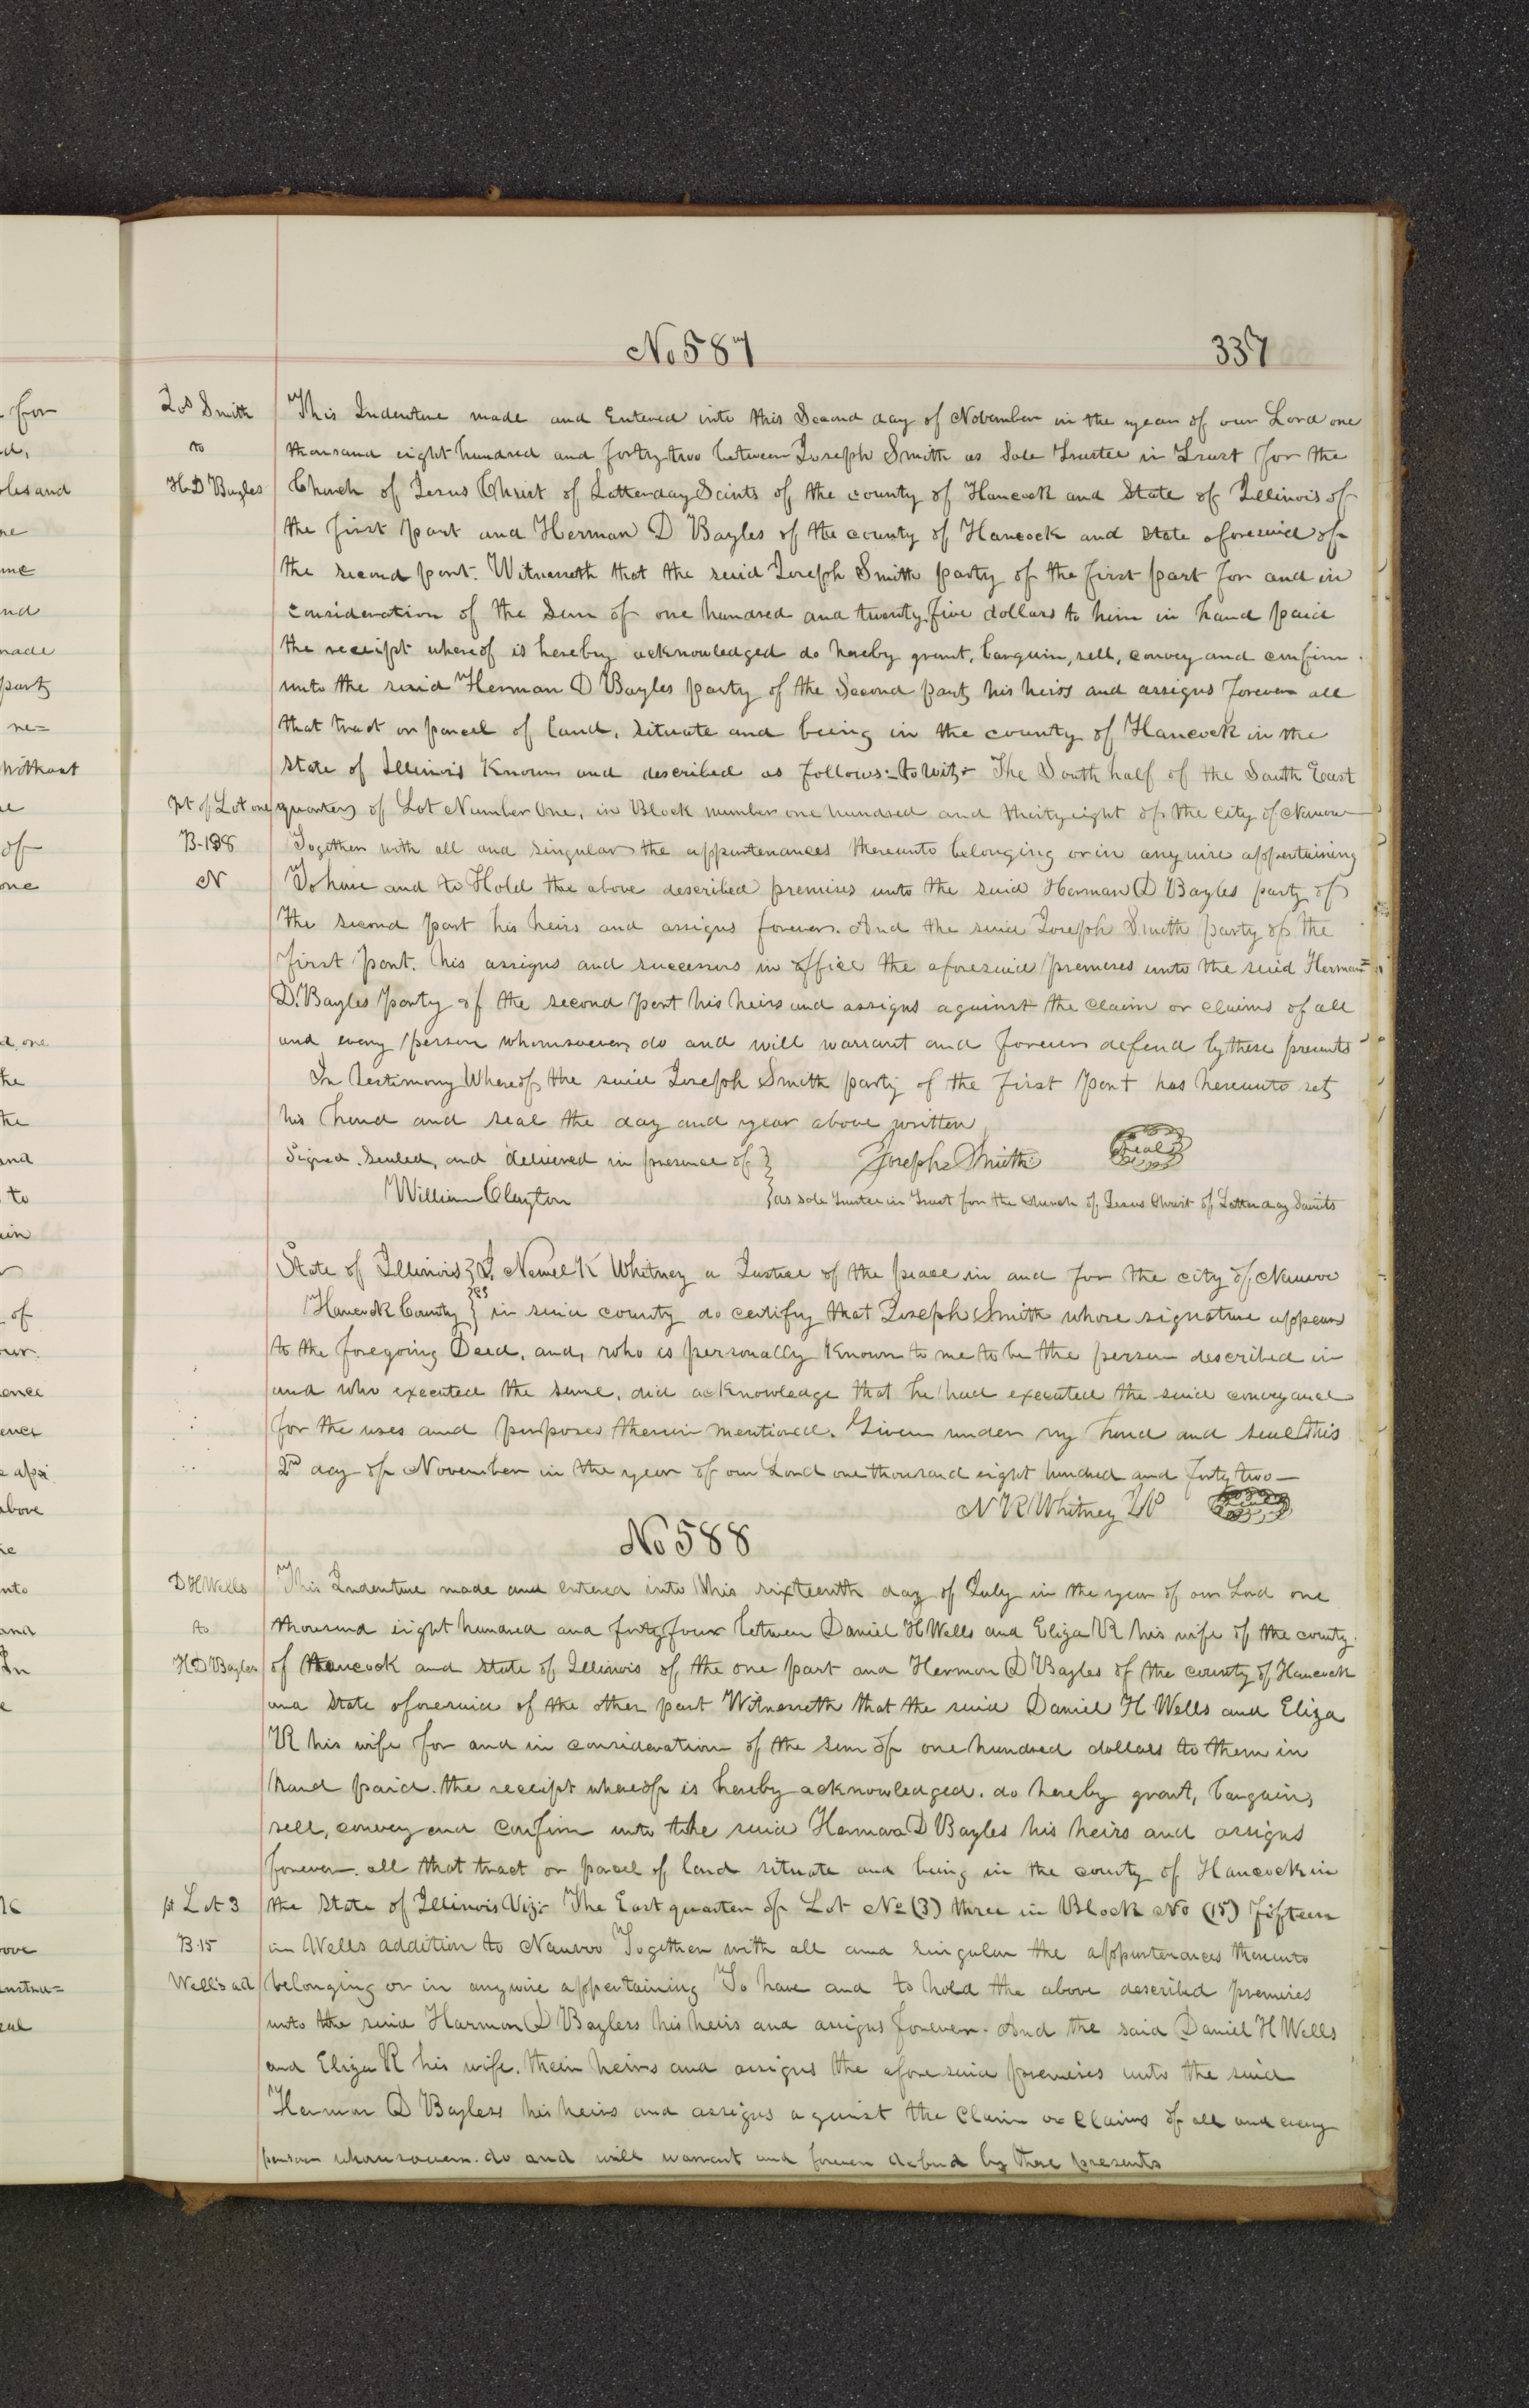 No 587
337
Jos Smith
to
H D Bayles
This Indenture made and Entered into this Second day of November in the year of our Lord one
thousand eight hundred and forty two between Joseph Smith as Sole Trustee in Trust for the
Church of Jesus Christ of Latterday Saints of the county of Hancock and State of Illinois of
the first part and Herman D Bayles of the county of Hancock and State aforesaid of
the second part. Witnesseth that the said Joseph Smith party of the first part for and in
consideration of the Sum of one hundred and twenty five dollars to him in hand paid
the receipt whereof is hereby acknowledged do hereby grant, bargain, sell, convey and confirm
unto the said Herman D Bayles party of the Second part his heirs and assigns forever all
that tract or parcel of land, situate and being in the county of Hancock in the
State of Illinois Known and described as follows:- to wit:- The South half of the South East
pt of Lot one
quarter of Lot Number One, in Block number one hundred and thirty eight of the City of Nauvoo
B-138
Together with all and singular the appurtenances thereunto belonging or in anywise appertaining
N
To have and to Hold the above described premises unto the said Herman D Bayles party of
the second part his heirs and assigns forever. And the said Joseph Smith party of the
first part. his assigns and successors in office the aforesaid premeses unto the said Herman
D. Bayles party of the second part his heirs and assigns against the claim or claims of all
and every person whomsoever, do and will warrant and forever defend by these presents
In testimony Whereof the said Joseph Smith party of the first part has hereunto set
his hand and seal the day and year above written
Signed. Sealed, and delivered in presence of } Joseph Smith Seal
William Clayton } as sole trustee in Trust for the Church of Jesus Christ of Latter day Saints
State of Illinois } ss I. Newel K Whitney a Justice of the peace in and for the city of Nauvoo
Hancock County } in said county do certify that Joseph Smith whose signature appears
to the foregoing Deed, and, who is personally Known to me to be the person described in
and who executed the same, did acknowledge that he had executed the said conveyance
for the uses and purposes therein mentioned. Given under my hand and seal this
2nd day of November in the year of our Lord one thousand eight hundred and forty two—
N K Whitney JP
No 588
D H Wells
to
H D Bayles
This Indenture made and entered into this sixteenth day of July in the year of our Lord one
thousand eight hundred and forty four between Daniel H Wells and Eliza R his wife of the county
of Hancock and State of Illinois of the one part and Hermon D Bayles of the county of Hancock
and State aforesaid of the other part Witnesseth that the said Daniel H Wells and Eliza
R his wife for and in consideration of the sum of one hundred dollars to them in
hand paid. the receipt whereof is hereby acknowledged. do hereby grant, bargain,
sell, convey and confirm unto the said Hermon D Bayles his heirs and assigns
forever. all that tract or parcel of land situate and being in the county of Hancock in
pt Lot 3
the State of Illinois Viz:- The East quarter of Lot No (3) three in Block No (15) fifteen
B.15
in Wells addition to Nauvoo Together with all and singular the appurtenances thereunto
Well's ad
belonging or in anywise appertaining To have and to hold the above described premises
unto the said Harmon D Bayless his heirs and assigns forever. And the said Daniel H Wells
and Eliza R his wife. their heirs and assigns the aforesaid premeses unto the said
Hermon D Bayless his heirs and assigns against the Claim or Claims of all and every
person whomsoever. do and will warrant and forever defend by these presents